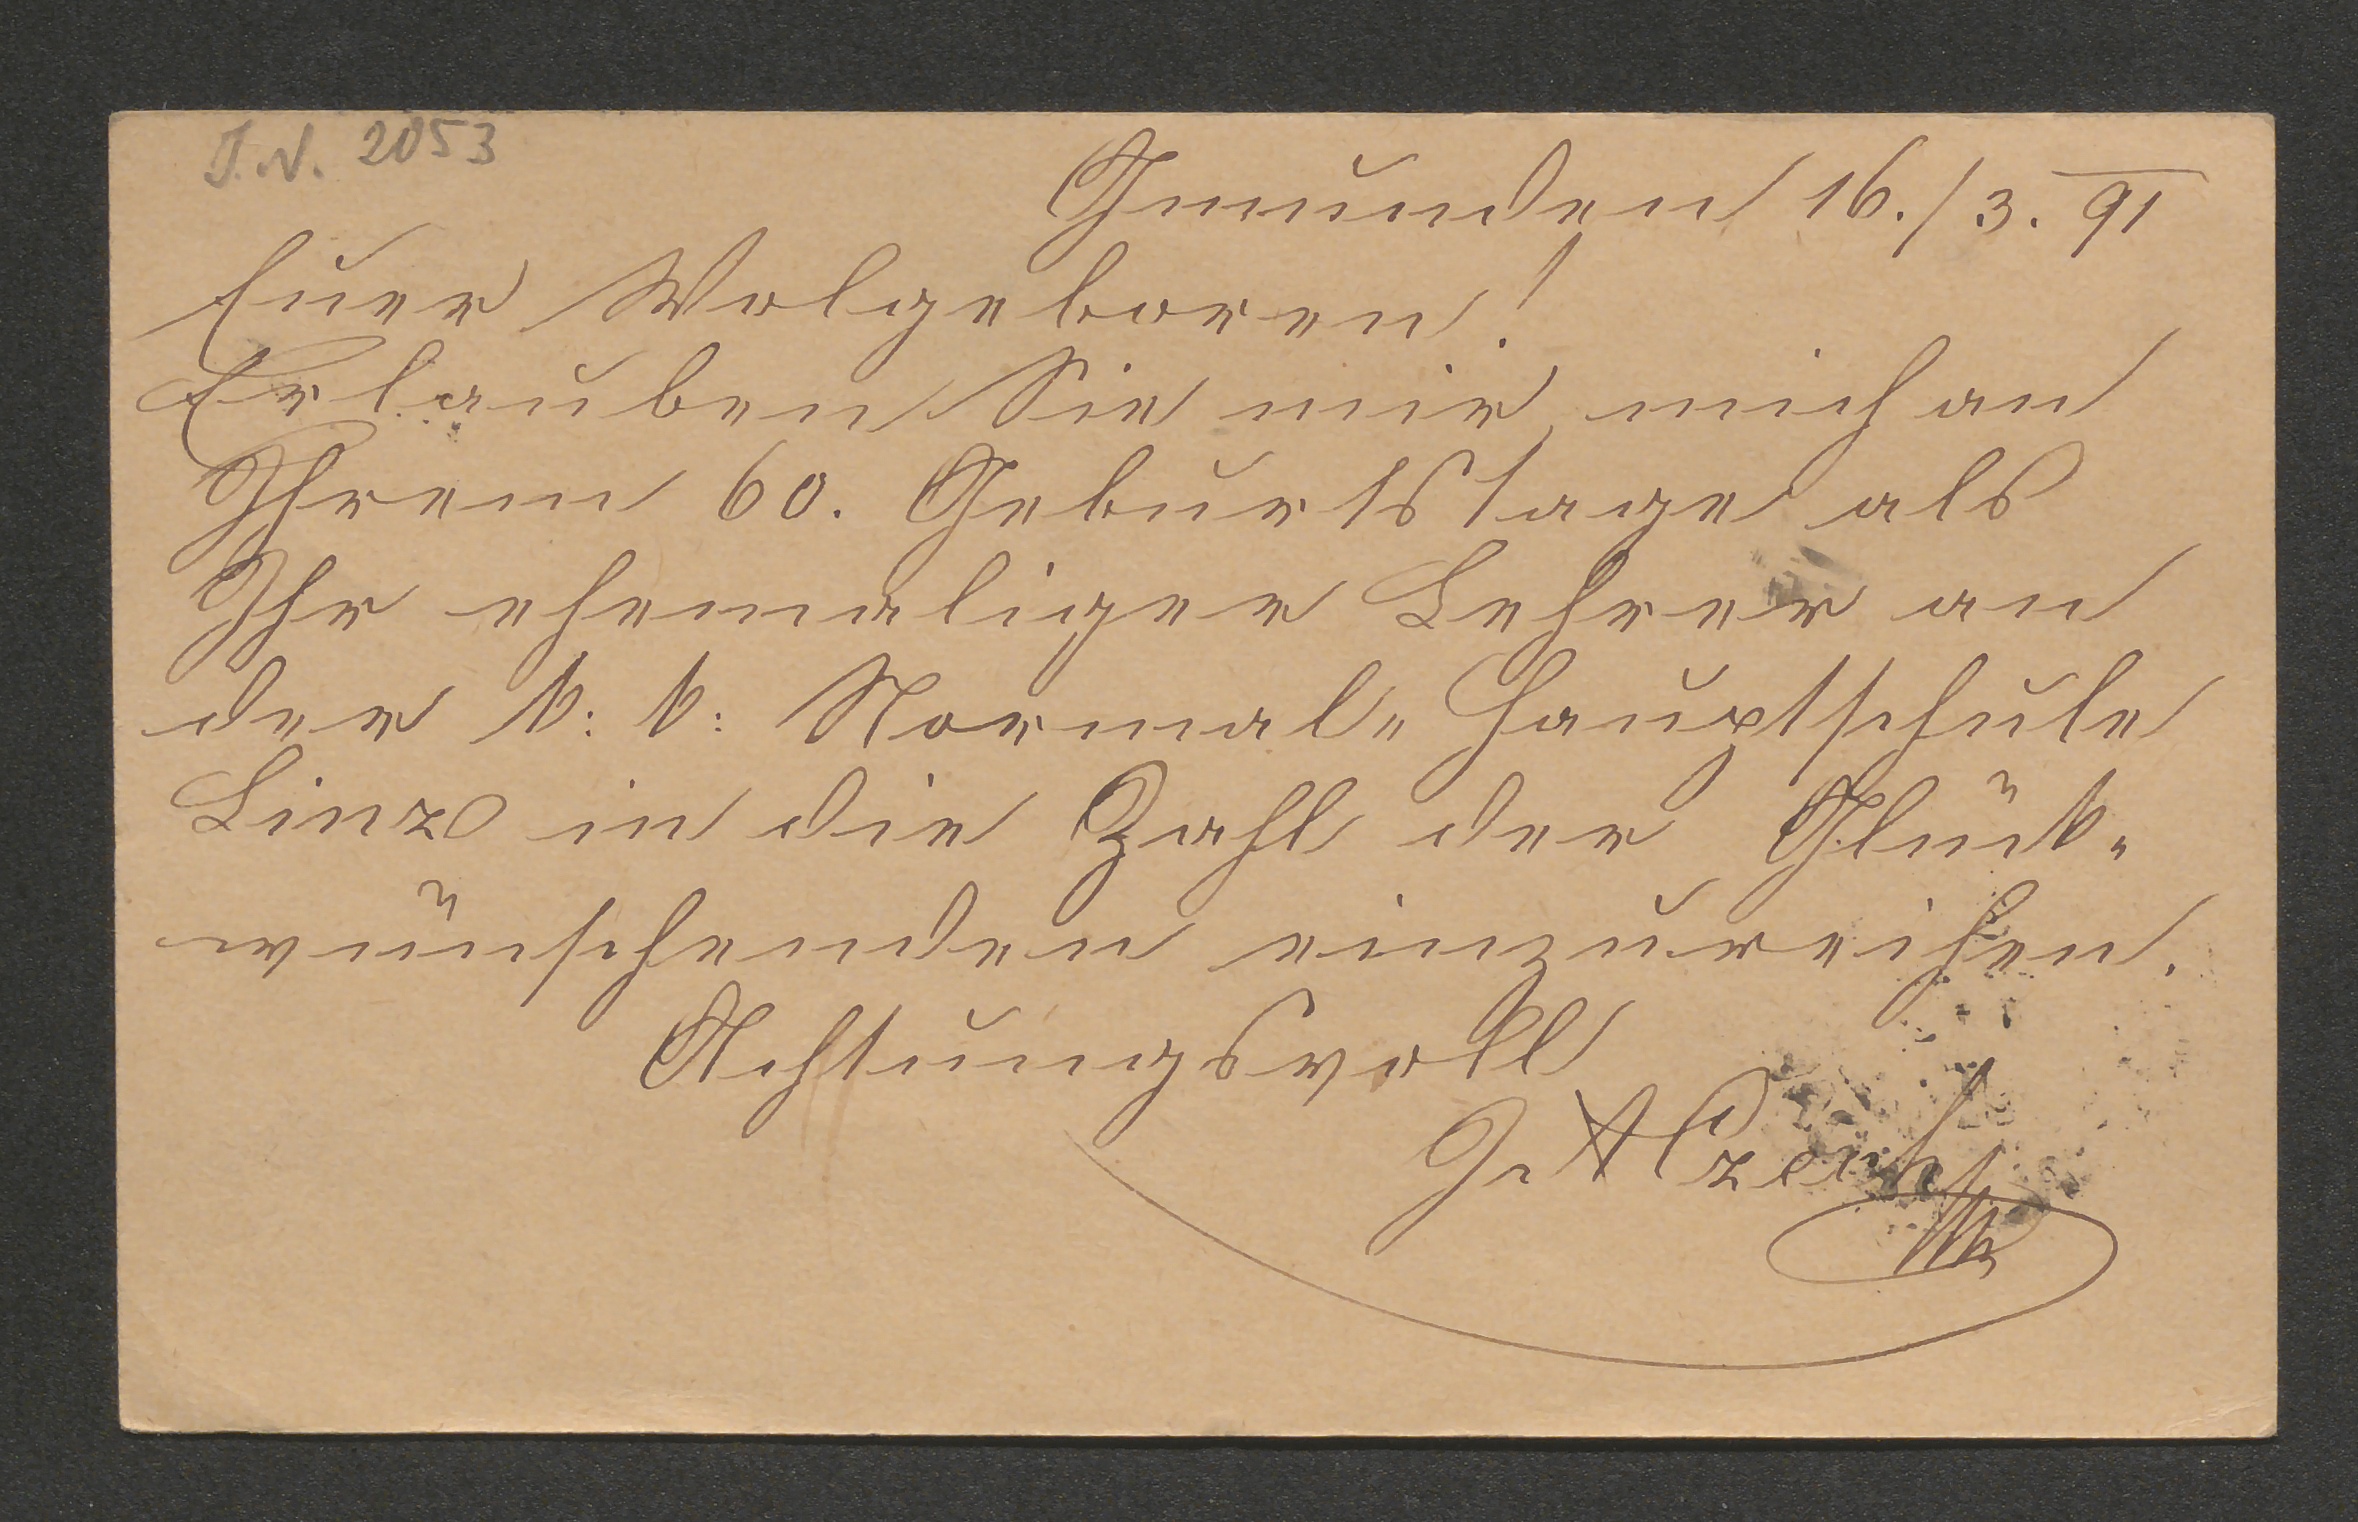 J. N. 2053
Gmunden 16./3. 91
Euer Wolgeboren!
Erlauben Sie mir, mich an
Ihrem 60. Geburtstage als
Ihr ehemaliger Lehrer an
der k: k: Normal-Hauptschule
Linz in die Zahl der Glück-
wünschenden einzureihen.
Achtungsvoll